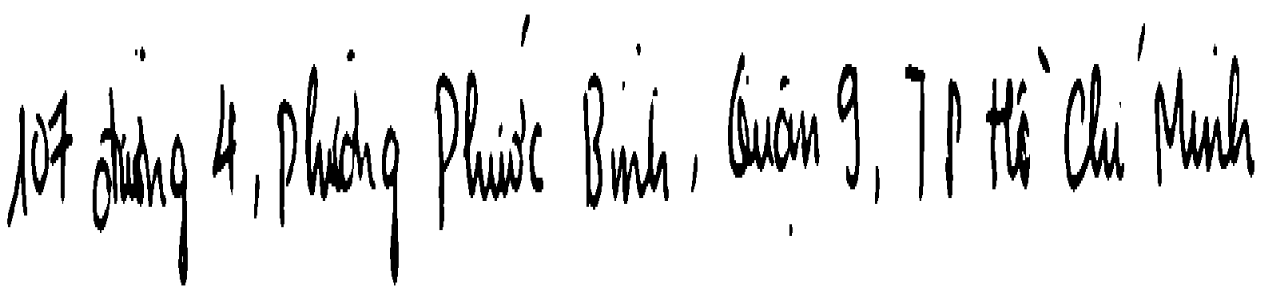 107 đường 4, Phường Phước Bình, Quận 9, TP Hồ Chí Minh